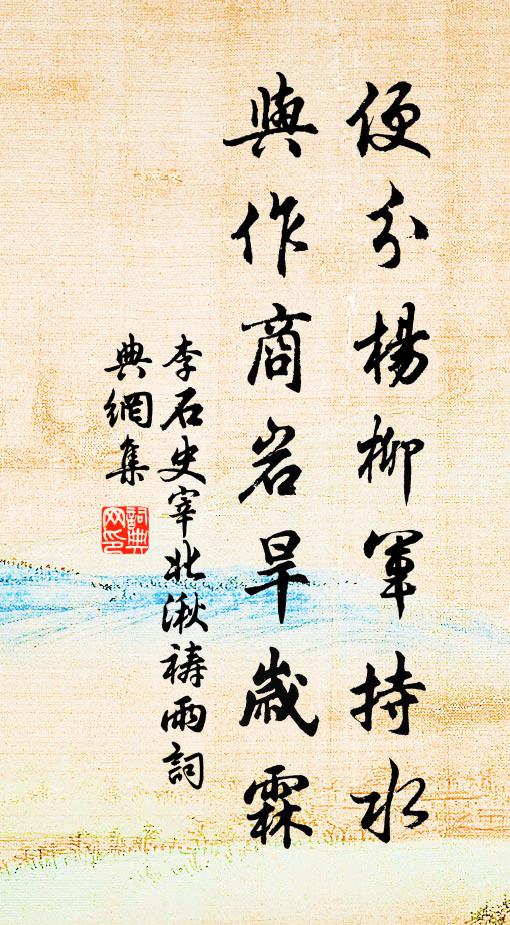 便分楊柳軍持水
與作商岩旱歲霖
李石史宰北湫禱雨詞
典網集
詞典
网印